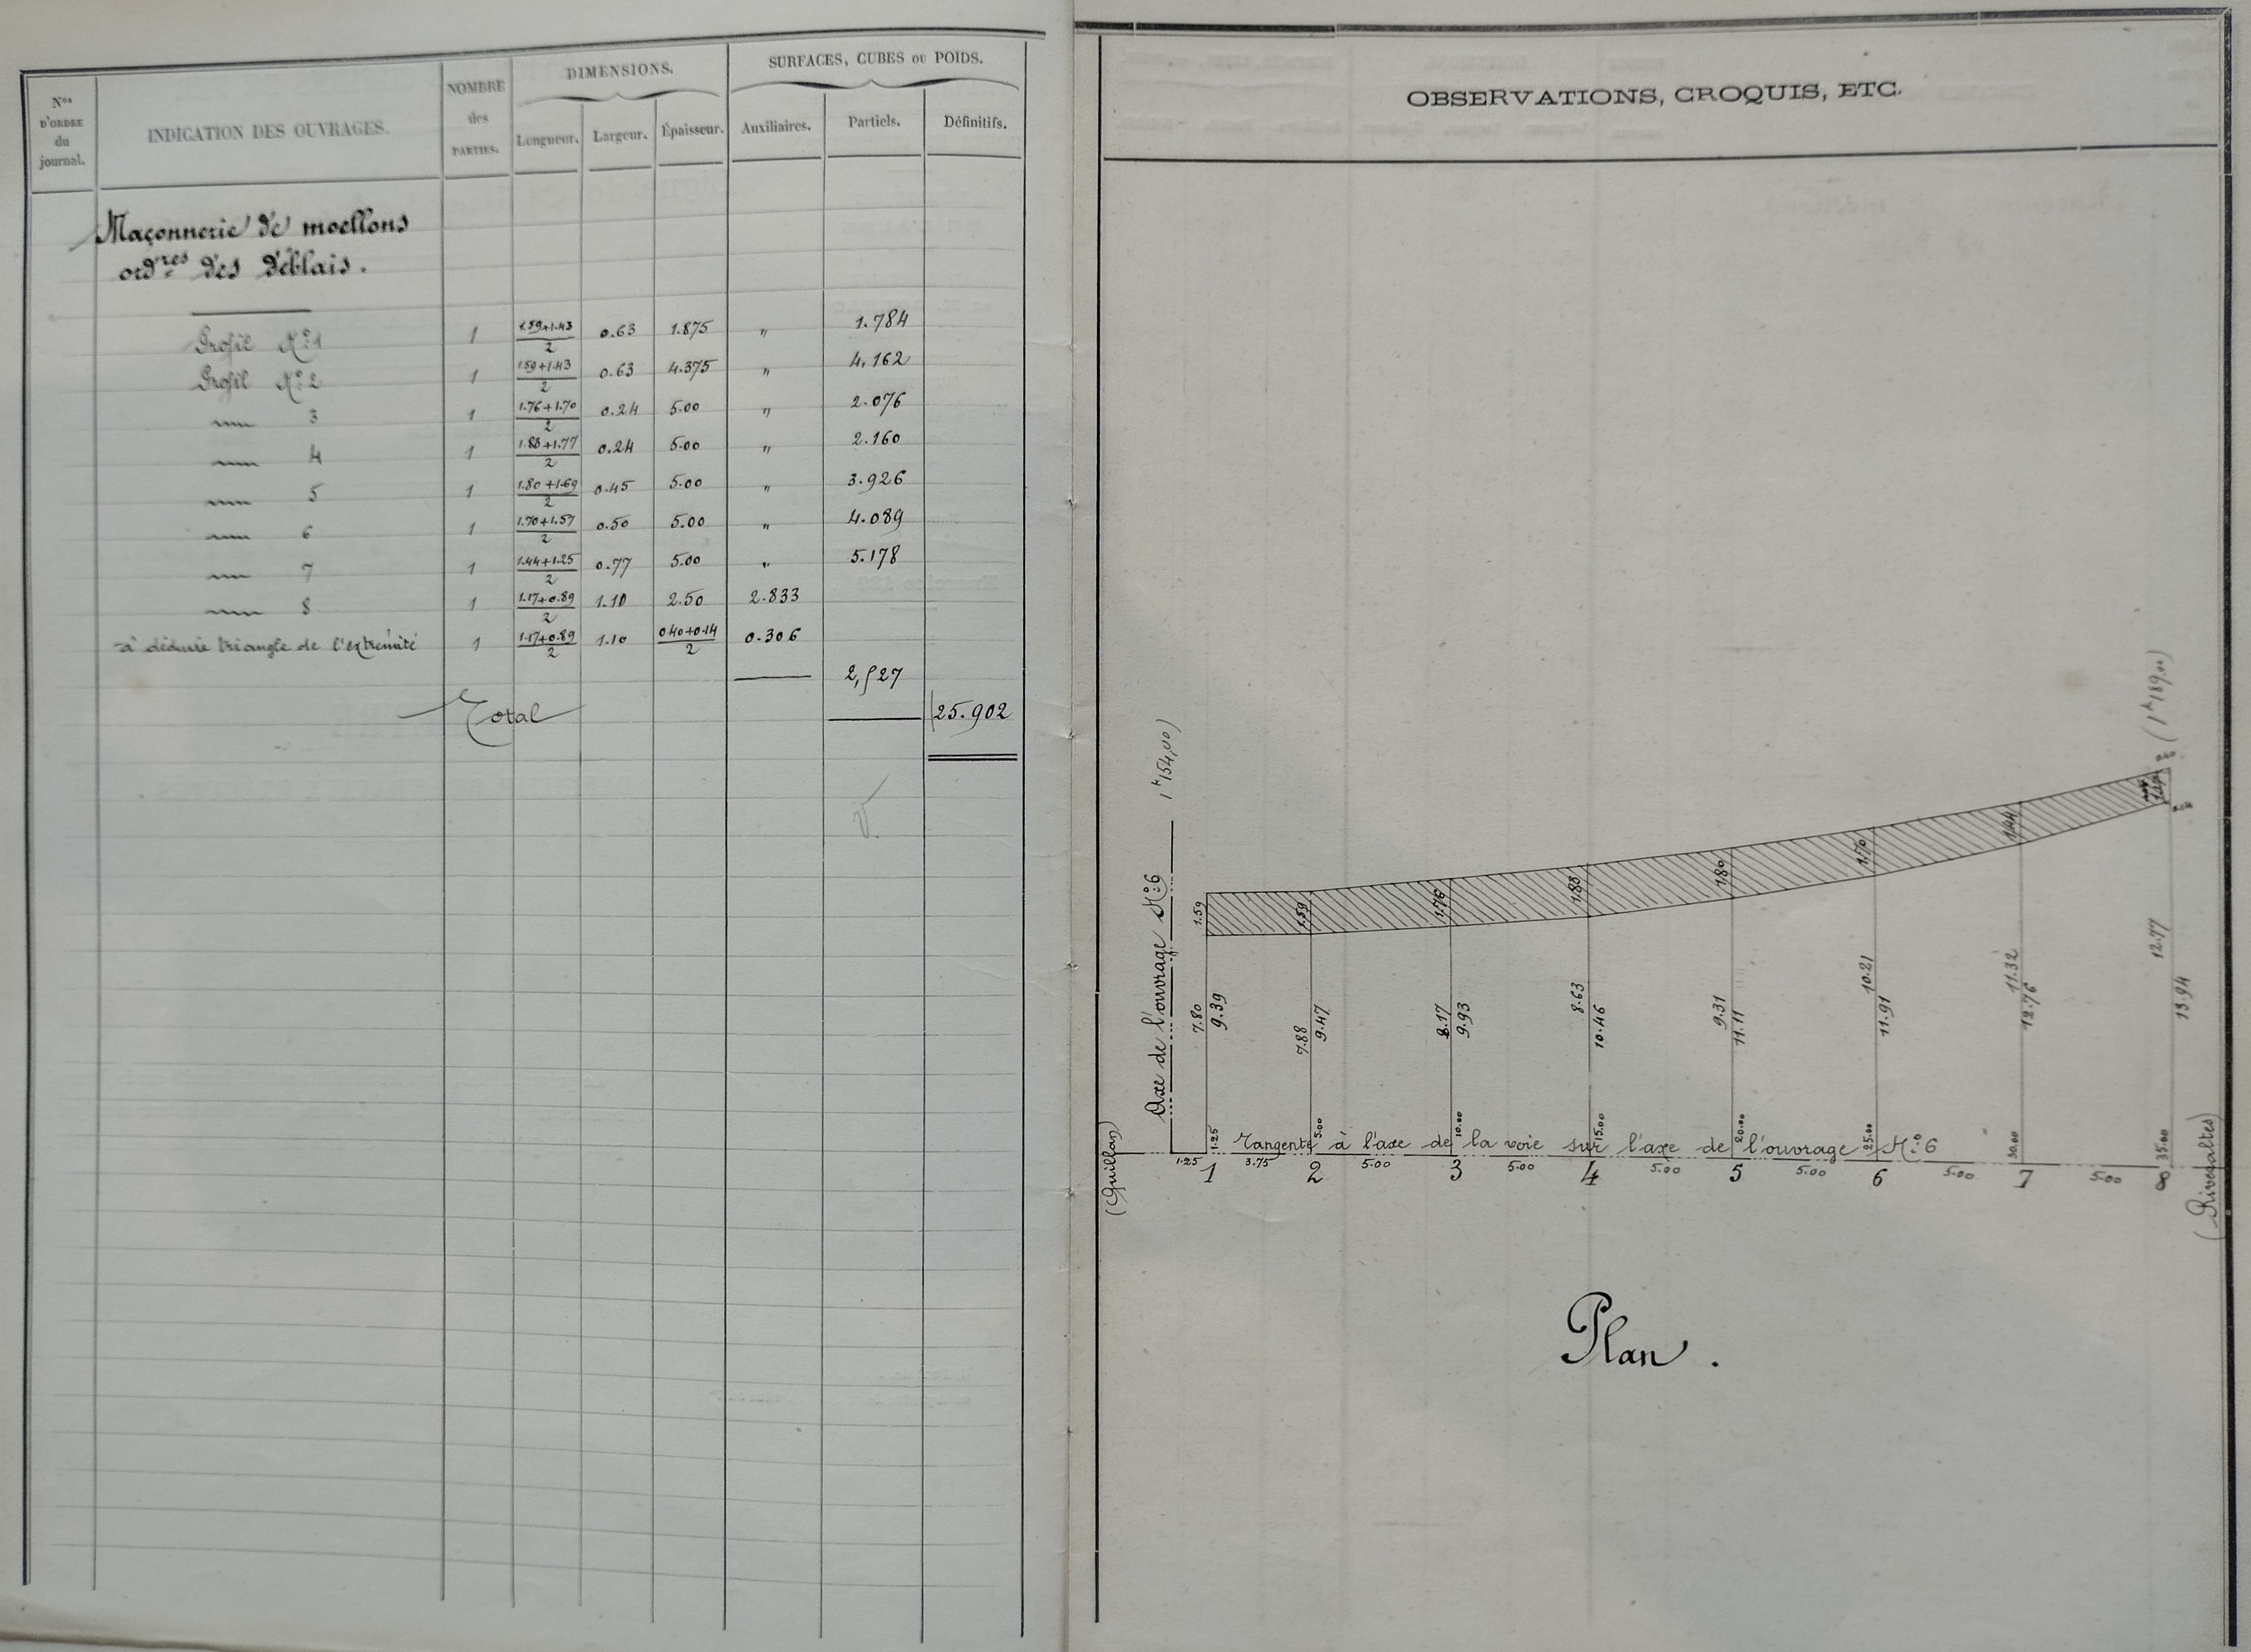 Nos D'ORDRE du journal.
INDICATION DES OUVRAGES.
NOMBRE des PARTIES.
DIMENSIONS.
Longueur. Largeur. Épaisseur.
SURFACES, CUBES OU POIDS.
Auxiliaires. Partiels. Définitifs.
Maçonnerie de moellons
ordres des déblais.
Profil No 1 1 1.59+1.43/2 0.63 1.875 " 1.784
Profil No 2 1 1.59+1.43/2 0.63 4.375 " 4,162
— 3 1 1.76+1.70/2 0.24 5.00 " 2.076
— 4 1 1.83+1.77/2 0.24 5.00 " 2.160
— 5 1 1.80+1.69/2 0.45 5.00 " 3.926
— 6 1 1.70+1.57/2 0.50 5.00 " 4.089
— 7 1 1.44+1.25/2 0.77 5.00 " 5.178
— 8 1 1.17+0.89/2 1.10 2.50 2.833
à déduire triangle de l'extrémité 1 1.17+0.89/2 1.10 0.40+0.14/2 0.306
2,527
Total 25.902
OBSERVATIONS, CROQUIS, ETC.
Axe de l'ouvrage No 6 1k154,00)
(1k189,00)
1.59 1.59 1.76 1.83 1.80 1.70 1.44
7.80 7.88 8.17 8.63 9.31 10.21 11.32 12.77
9.39 9.47 9.93 10.46 11.11 11.91 12.76 13.94
1.25 5.00 10.00 15.00 20.00 25.00 30.00 35.00
Tangente à l'axe de la voie sur l'axe de l'ouvrage No 6
1.25 3.75 5.00 5.00 5.00 5.00 5.00 5.00
1 2 3 4 5 6 7 8
(Quillan)
(Rivesaltes)
Plan.